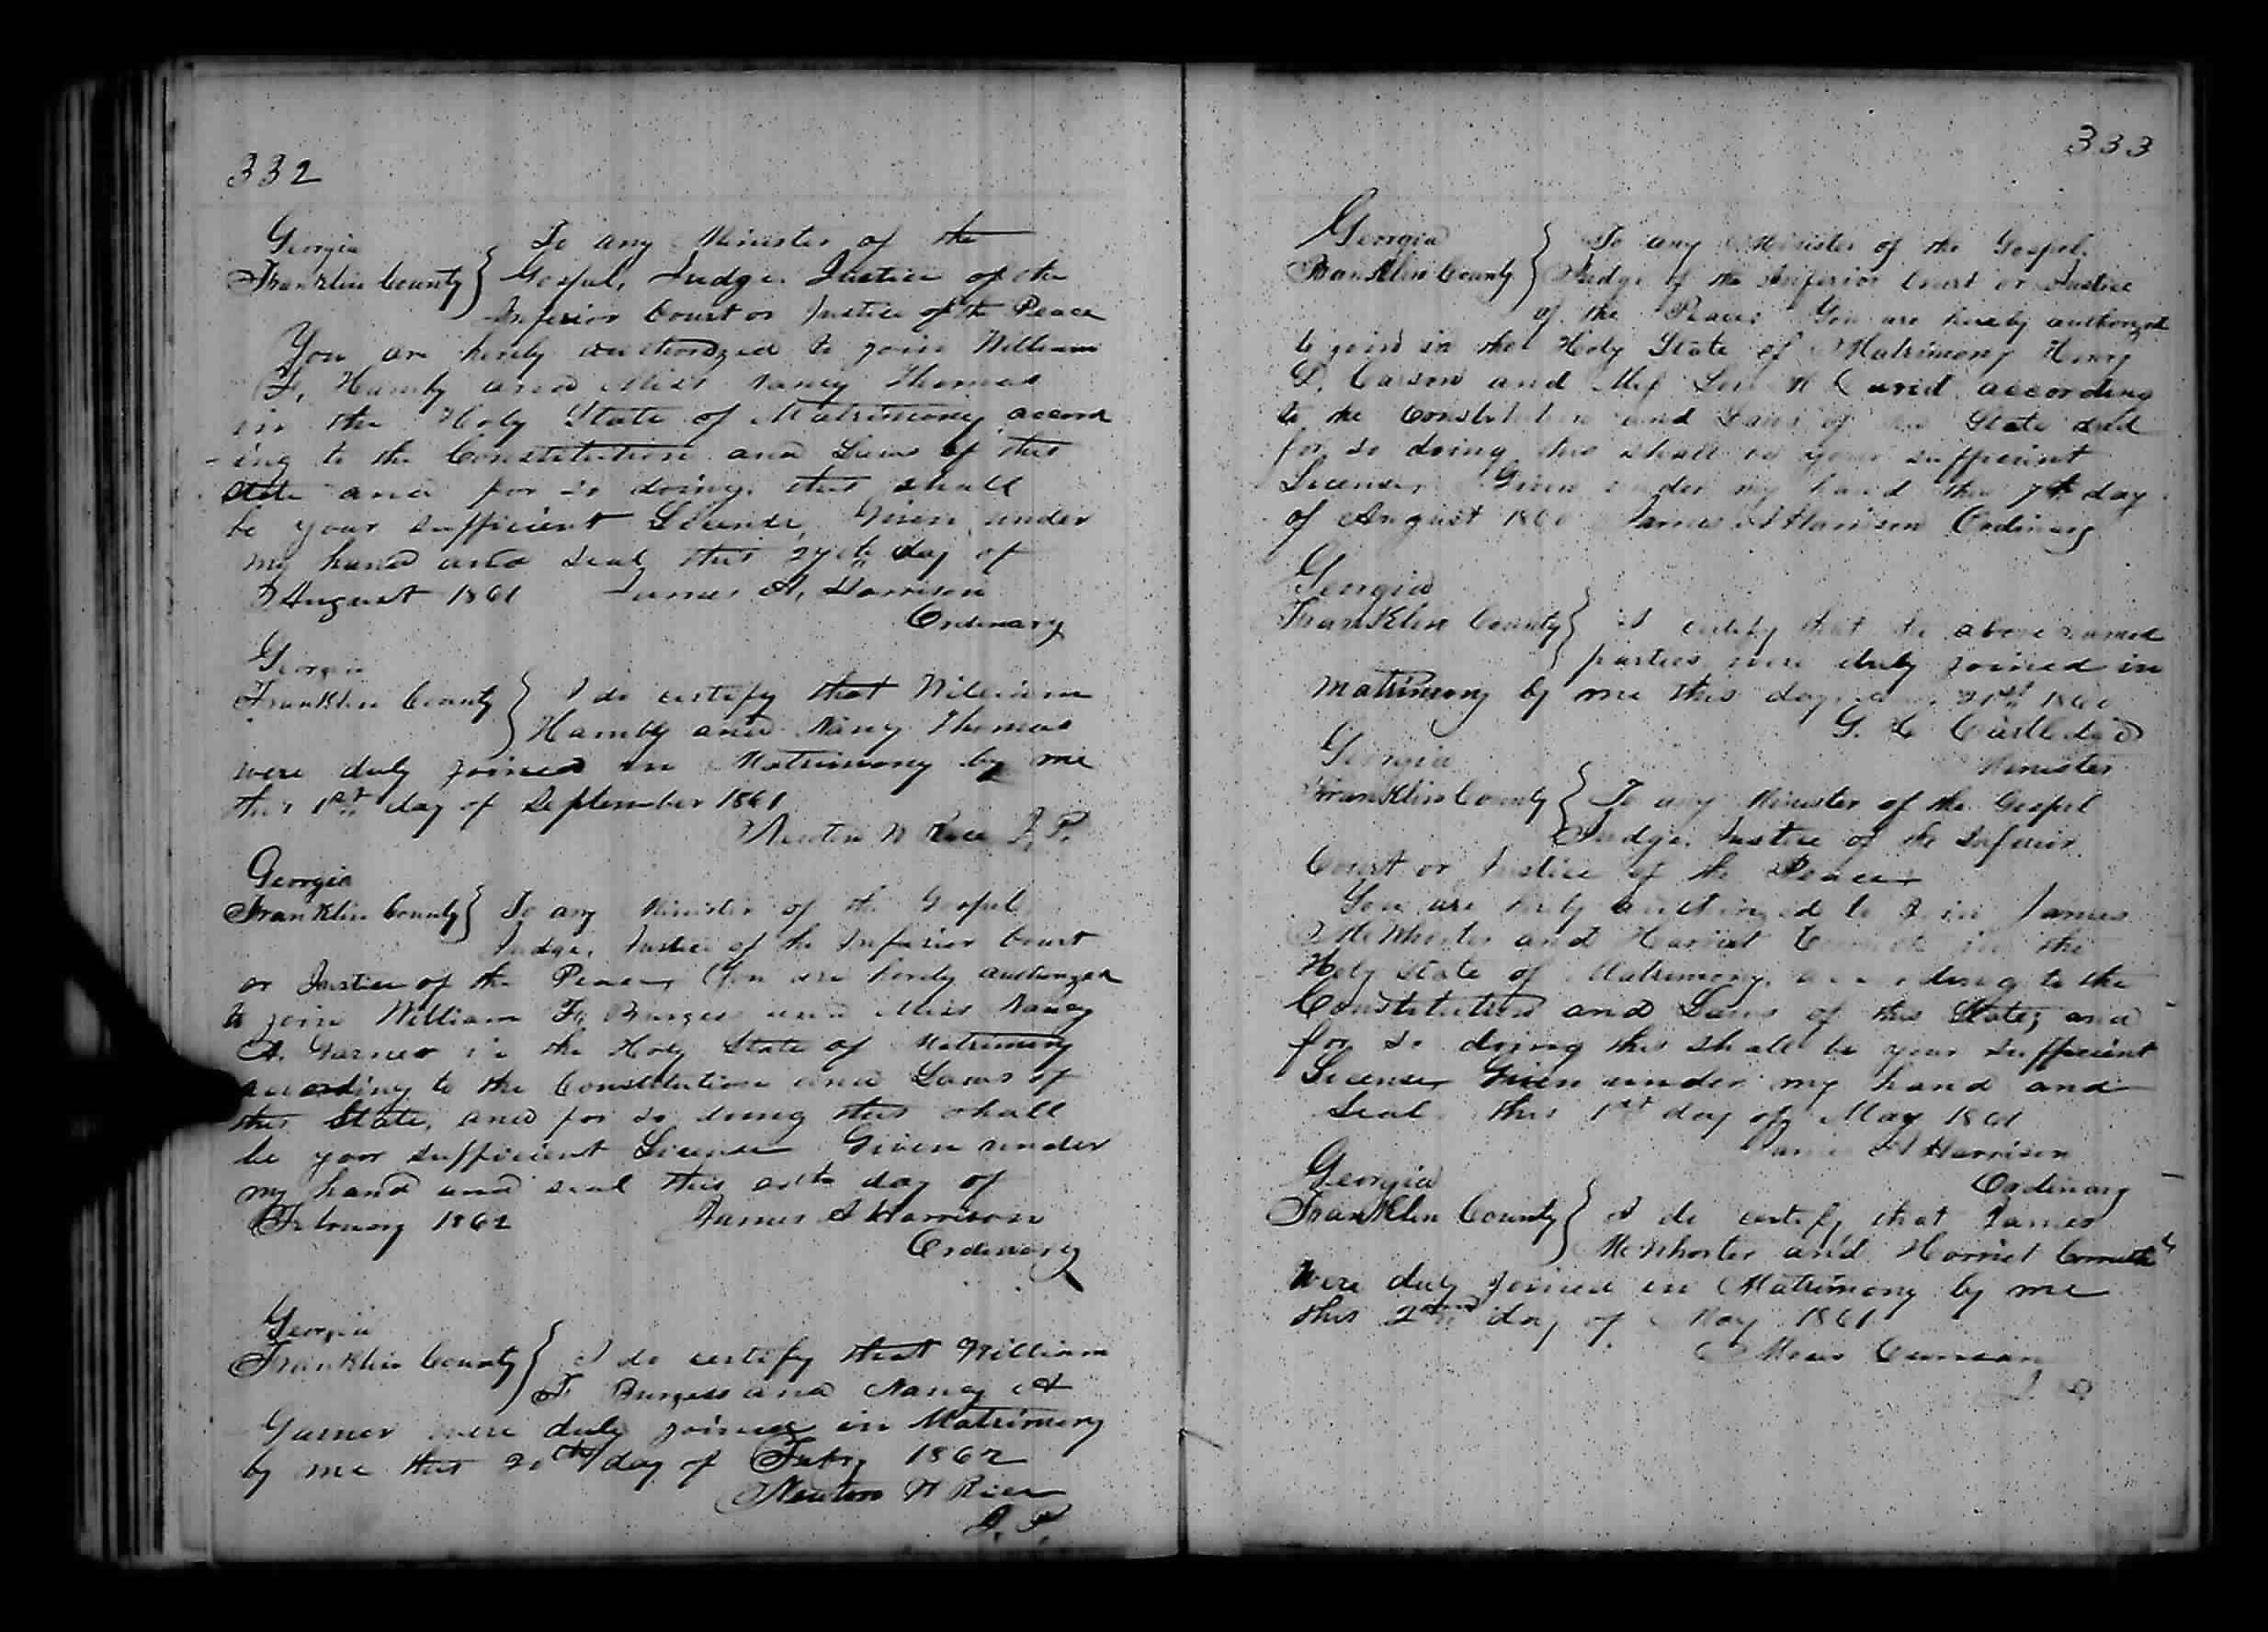 332
Georgia
Franklin County } To any Minister of the
Gospel, Judge, Justice of the
Inferior Court or Justice of the Peace
You are hereby authorized to join William
F. Hamby and Miss Nancy Thomas
in the Holy State of Matrimony accord
-ing to the Constitution and Laws of this
State and for so doing this shall
be your sufficient License, Given under
my hand and seal this day of
August 1861 James A, Harrison
Ordinary
Georgia
Franklin County } I do certify that William
Hamby and Nancy Thomas
were duly joined in Matrimony by me
this 1st day of September 1861
Newton N Rice J. P.
Georgia
Franklin County } To any Minister of the Gospel
Judge, Justice of the Inferior Court
or Justice of the Peace, You are hereby authorized
to join William F, Burgess and Miss Nancy
A. Garner in the Holy State of Matrimony
according to the Constitution and Laws of
this State, and for so doing this shall
be your sufficient License Given under
my hand and seal this day of
February 1862 James A Harrison
Ordinary
Georgia
Franklin County } I do certify that William
F Burgess and Nancy A
Garner were duly joined in Matrimony
by me this 20th day of Feby 1862
Newton N Rice
J. P.
333
Georgia
Franklin County } To any Minister of the Gospel,
Judge of the Inferior Court or Justice
of the Peace; You are hereby authorized
to join in the Holy State of Matrimony Henry
D. Carson and according
to the Constitution and Laws of State and
for so doing this shall be your sufficient
License, Given under my hand this 7th day
of August 1860 James A Harrison Ordinary
Georgia
Franklin County } I certify that the above named
parties were duly joined in
matrimony by me this day 21st 1860
G. 
Minister
Georgia
Franklin County } To any Minister of the Gospel
Judge, Justice of the Inferior
Court or Justice of the Peace
You are hereby authorized to join James
McWhorter and Harriet in the
Holy State of Matrimony, according to the
Constitution and Laws of this State, and
for so doing this shall be your sufficient
License, Given under my hand and
Seal this 1st day of May 1861
James A Harrison
Ordinary
Georgia
Franklin County } I do certify that James
McWhorter and Harriet
were duly joined in Matrimony by me
this 2nd day of May 1861
J. P